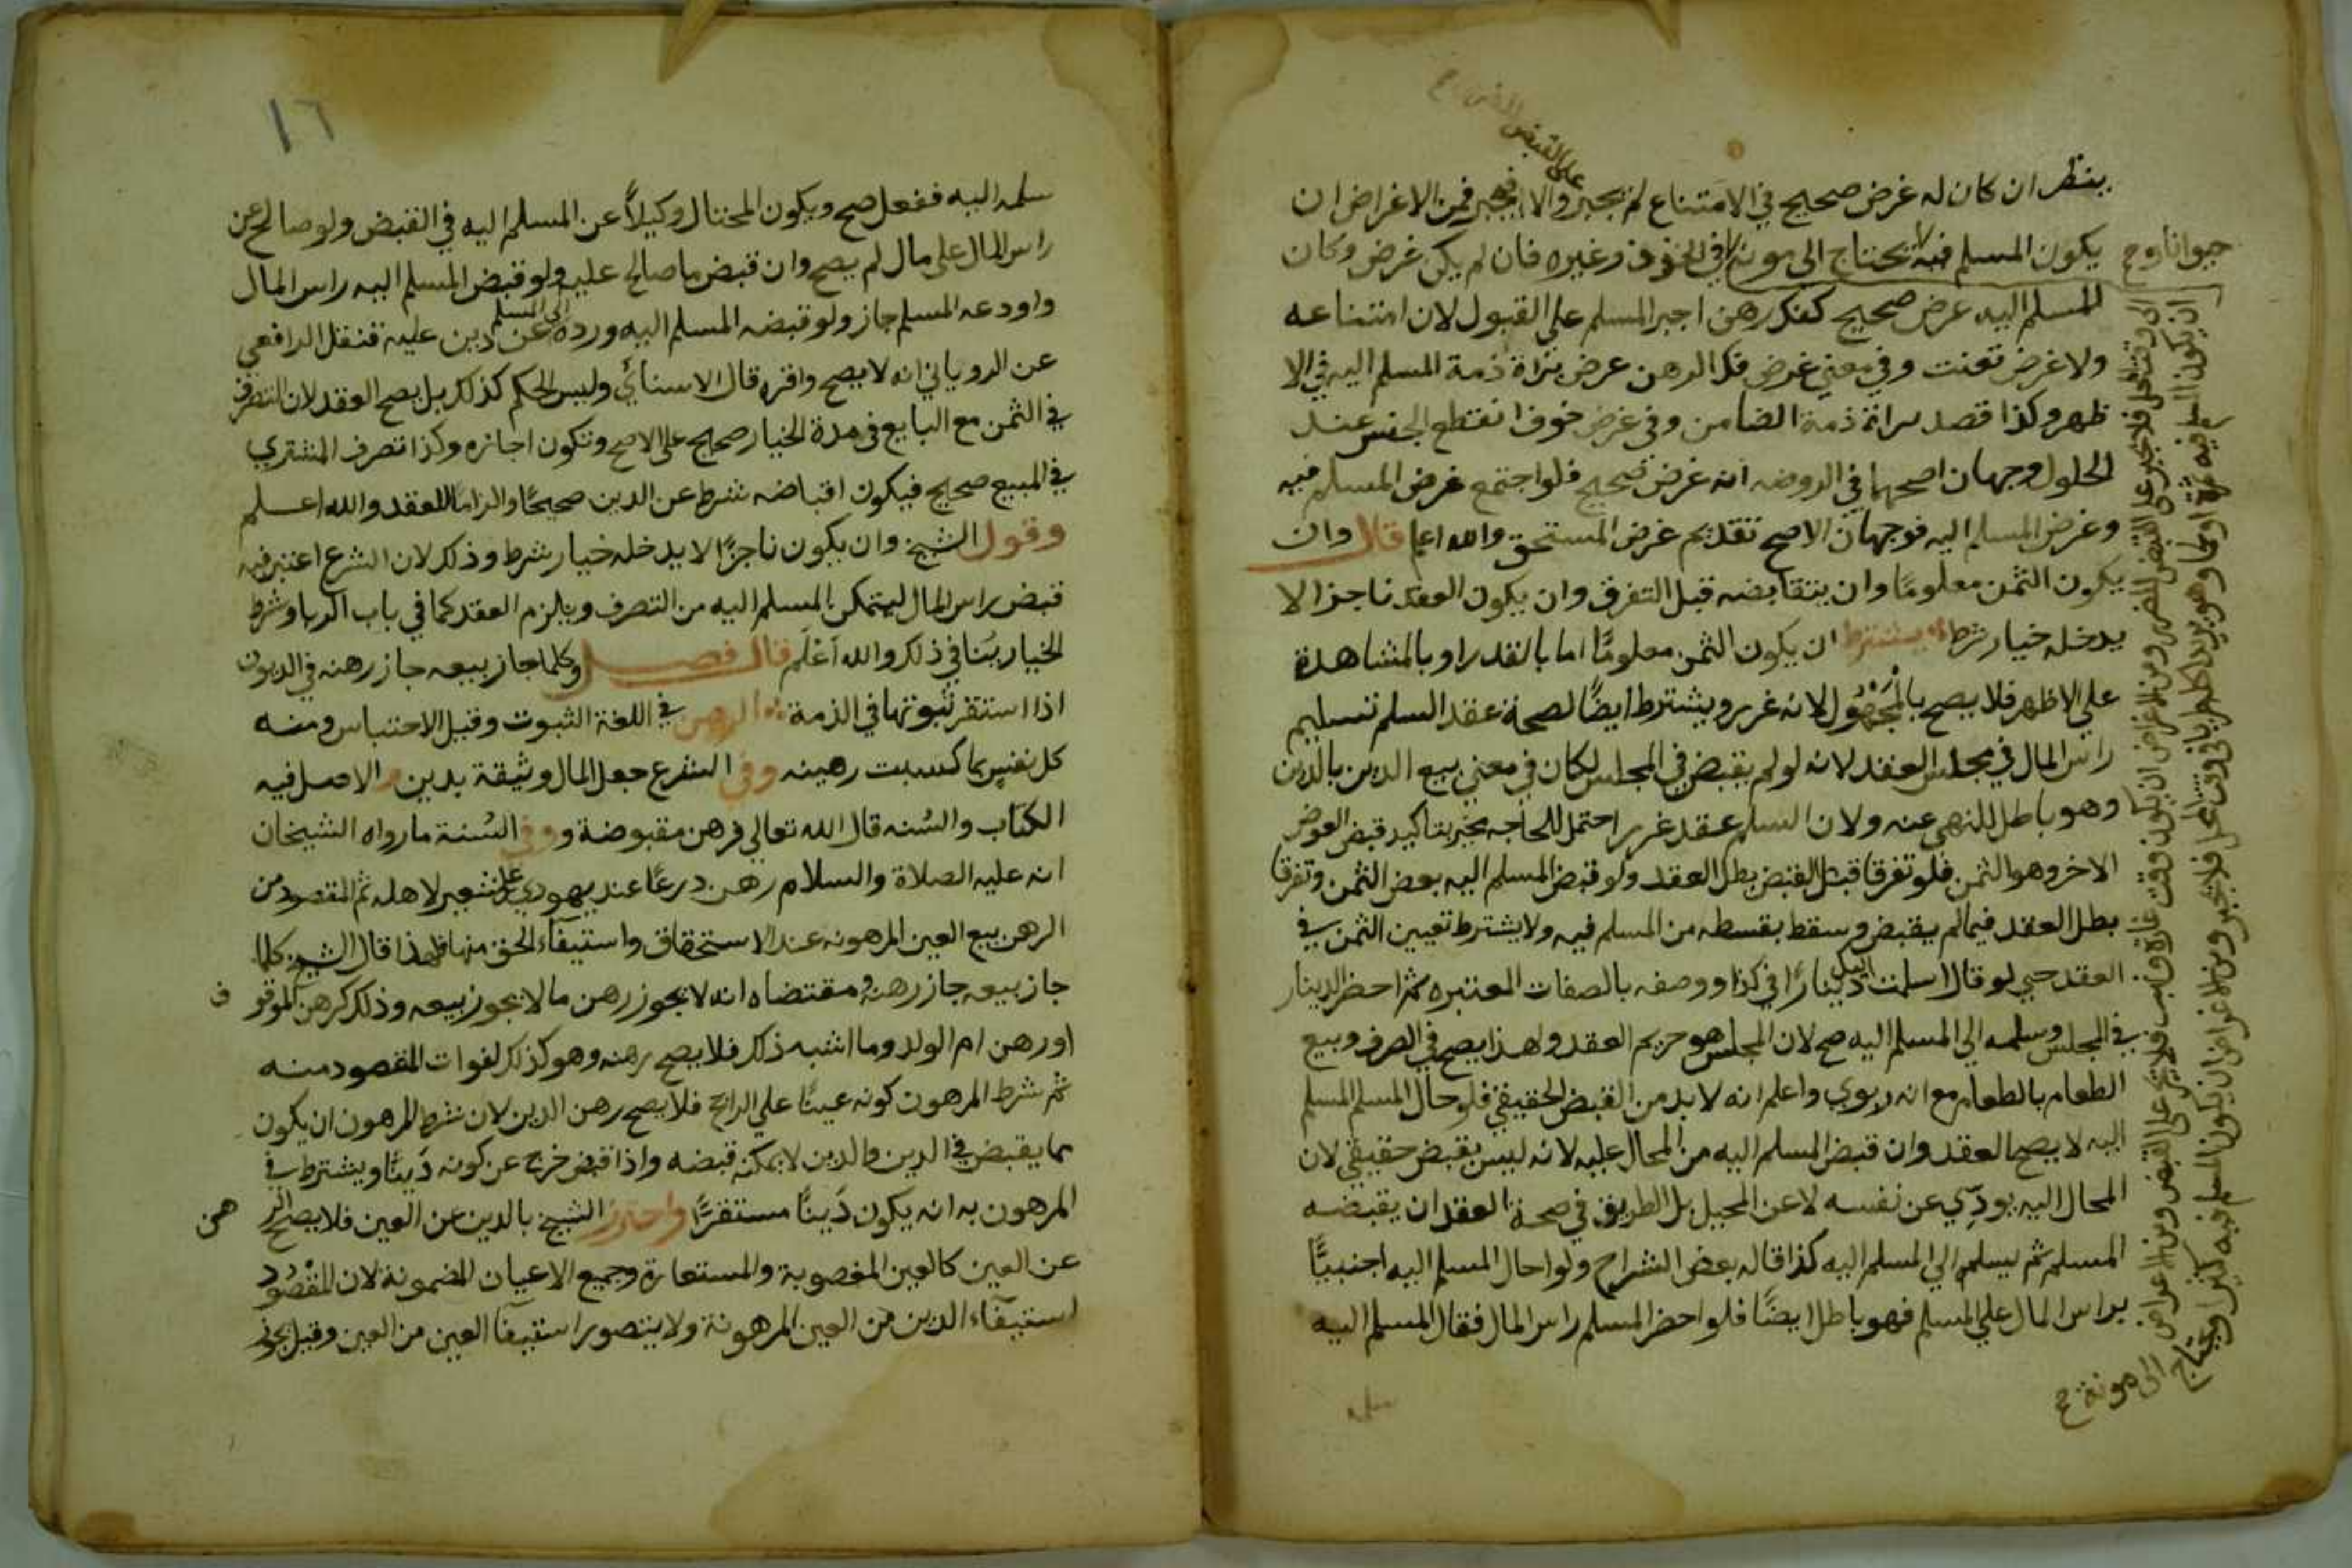 ينظر ان كان له غرض صحيح في الامتناع لم يجبر والا فيجبر فمن الاغراض ان
يكون المسلم فيه لا يحتاج الى مونة في الخوف وغيره فان لم يكن غرض وكان
للمسلم اليه غرض صحيح كفك رهن اجبر المسلم على القبول لان امتناعه
ولا غرض تعنت وفي معنى غرض فك الرهن غرض براة ذمة المسلم اليه في الا
ظهر وكذا قصد براة ذمة الضامن وفي غرض خوف انقطع الجنس عند
الحلول وجهان اصحهما في الروضه انه غرض صحيح فلو اجتمع غرض المسلم فيه
وغرض المسلم اليه فوجهان الاصح تقديم غرض المستحق والله اعلم قال وان
يكون الثمن معلومًا وان يتقابضه قبل التفرق وان يكون العقد ناجزا لا
يدخله خيار شرط يشترط ان يكون الثمن معلومًا اما بالقدر او بالمشاهدة
على الاظهر فلا يصح بالمجهول لانه غرر ويشترط ايضًا لصحة عقد السلم تسليم
راس المال في مجلس العقد لانه لو لم يقبض في المجلس لكان في معنى بيع الدين بالدين
وهو باطل للنهي عنه ولان السلم عقد غرر احتمل للحاجه بتاكيد قبض العوض
الاخر وهو الثمن فلو تفرقا قبل القبض بطل العقد ولو قبض المسلم اليه بعض الثمن وتفرقا
بطل العقد فيما لم يقبض وسقط بقسطه من المسلم فيه ولا يشترط تعيين الثمن في
العقد حتى لو قال اسلمت اليك دينارًا في كذا ووصفه بالصفات المعتبره ثم احضر الدينار
في المجلس وسلمه الى المسلم اليه صح لان المجلس هو حريم العقد ولهذا يصح في الصرف وبيع
الطعام بالطعام مع انه ربوي واعلم انه لا بد من القبض الحقيقي فلو حال المسلم المسلم
اليه لا يصح العقد وان قبض المسلم اليه من المحال عليه لانه ليس بقبض حقيقي لان
المحال اليه يودي عن نفسه لا عن المحيل بل الطريق في صحة العقد ان يقبضه
المسلم ثم يسلم الى المسلم اليه كذا قاله بعض الشراح ولو احال المسلم اليه اجنبيًّا
براس المال على المسلم فهو باطل ايضًا فلو احضر المسلم راس المال فقال المسلم اليه
حيوانا وح
على القبض
ان يكون المسلم فيه ثمرة او لحما وهو يريد اكلهما طريا في وقت المحل فلا يجبر ومن الاغراض ان يكون المسلم فيه كثيرا ويحتاج
الى مونة ح
١٦
سلمه اليه ففعل صح ويكون المحتال وكيلاً عن المسلم اليه في القبض ولو صالح عن
راس المال على مال لم يصح وان قبض ما صالح عليه ولو قبض المسلم اليه راس المال
واودعه المسلم جاز ولو قبضه المسلم اليه ورده الى المسلم عن دين عليه فنقل الرافعي
عن الروياني انه لا يصح واقره قال الاسنائي وليس الحكم كذلك بل يصح العقد لان التصرف
في الثمن مع البايع في مدة الخيار صحيح على الاصح وتكون اجازه وكذا تصرف المشتري
في المبيع صحيح فيكون اقباضه شرط عن الدين صحيحًا والزامًا للعقد والله اعلم
وقول الشيخ وان يكون ناجزًا لا يدخله خيار شرط وذلك لان الشرع اعتبر فيه
قبض راس المال ليتمكن المسلم اليه من التصرف ويلزم العقد كما في باب الربا وشرط
الخيار ينافي ذلك والله اعلم قال فصل وكلما جاز بيعه جاز رهنه في الديون
اذا استقر ثبوتها في الذمة الرهن في اللغة الثبوت وقيل الاحتباس ومنه
كل نفس بما كسبت رهينه وفي الشرع جعل المال وثيقة بدين والاصل فيه
الكتاب والسنه قال الله تعالى فرهن مقبوضة ووفي السنة ما رواه الشيخان
انه عليه الصلاة والسلام رهن درعًا عند يهودي على شعير لاهله ثم المقصود من
الرهن بيع العين المرهونه عند الاستحقاق واستيفاء الحق منها فلهذا قال الشيخ كلما
جاز بيعه جاز رهنه ومقتضاه انه لا يجوز رهن ما لا يجوز بيعه وذلك كرهن الموقوف
او رهن ام الولد وما اشبه ذلك فلا يصح رهنه وهو كذلك لفوات المقصود منه
ثم شرط المرهون كونه عينًا على الراجح فلا يصح رهن الدين لان شرط المرهون ان يكون
مما يقبض في الدين والدين لا يمكن قبضه واذا قبض خرج عن كونه دَينًا ويشترط في
المرهون به انه يكون دَينًا مستقرًّا واحترز الشيخ بالدين عن العين فلا يصح الرهن
عن العين كالعين المغصوبة والمستعارة وجميع الاعيان المضمونة لان المقصود
استيفاء الدين من العين المرهونة ولا يتصور استيفا العين من العين وقيل يجوز